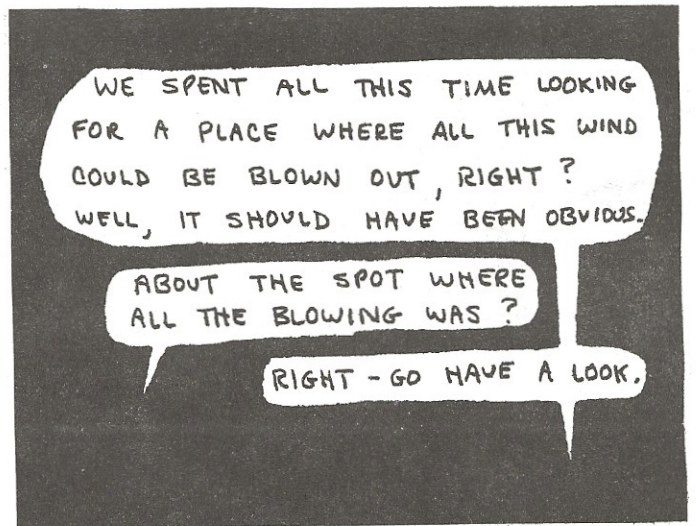 WE SPENT ALL THIS TIME LOOKING
FOR A PLACE WHERE ALL THIS WIND
COULD BE BLOWN OUT, RIGHT?
WELL, IT SHOULD HAVE BEEN OBVIOUS.
ABOUT THE SPOT WHERE
ALL THE BLOWING WAS?
RIGHT - GO HAVE A LOOK.